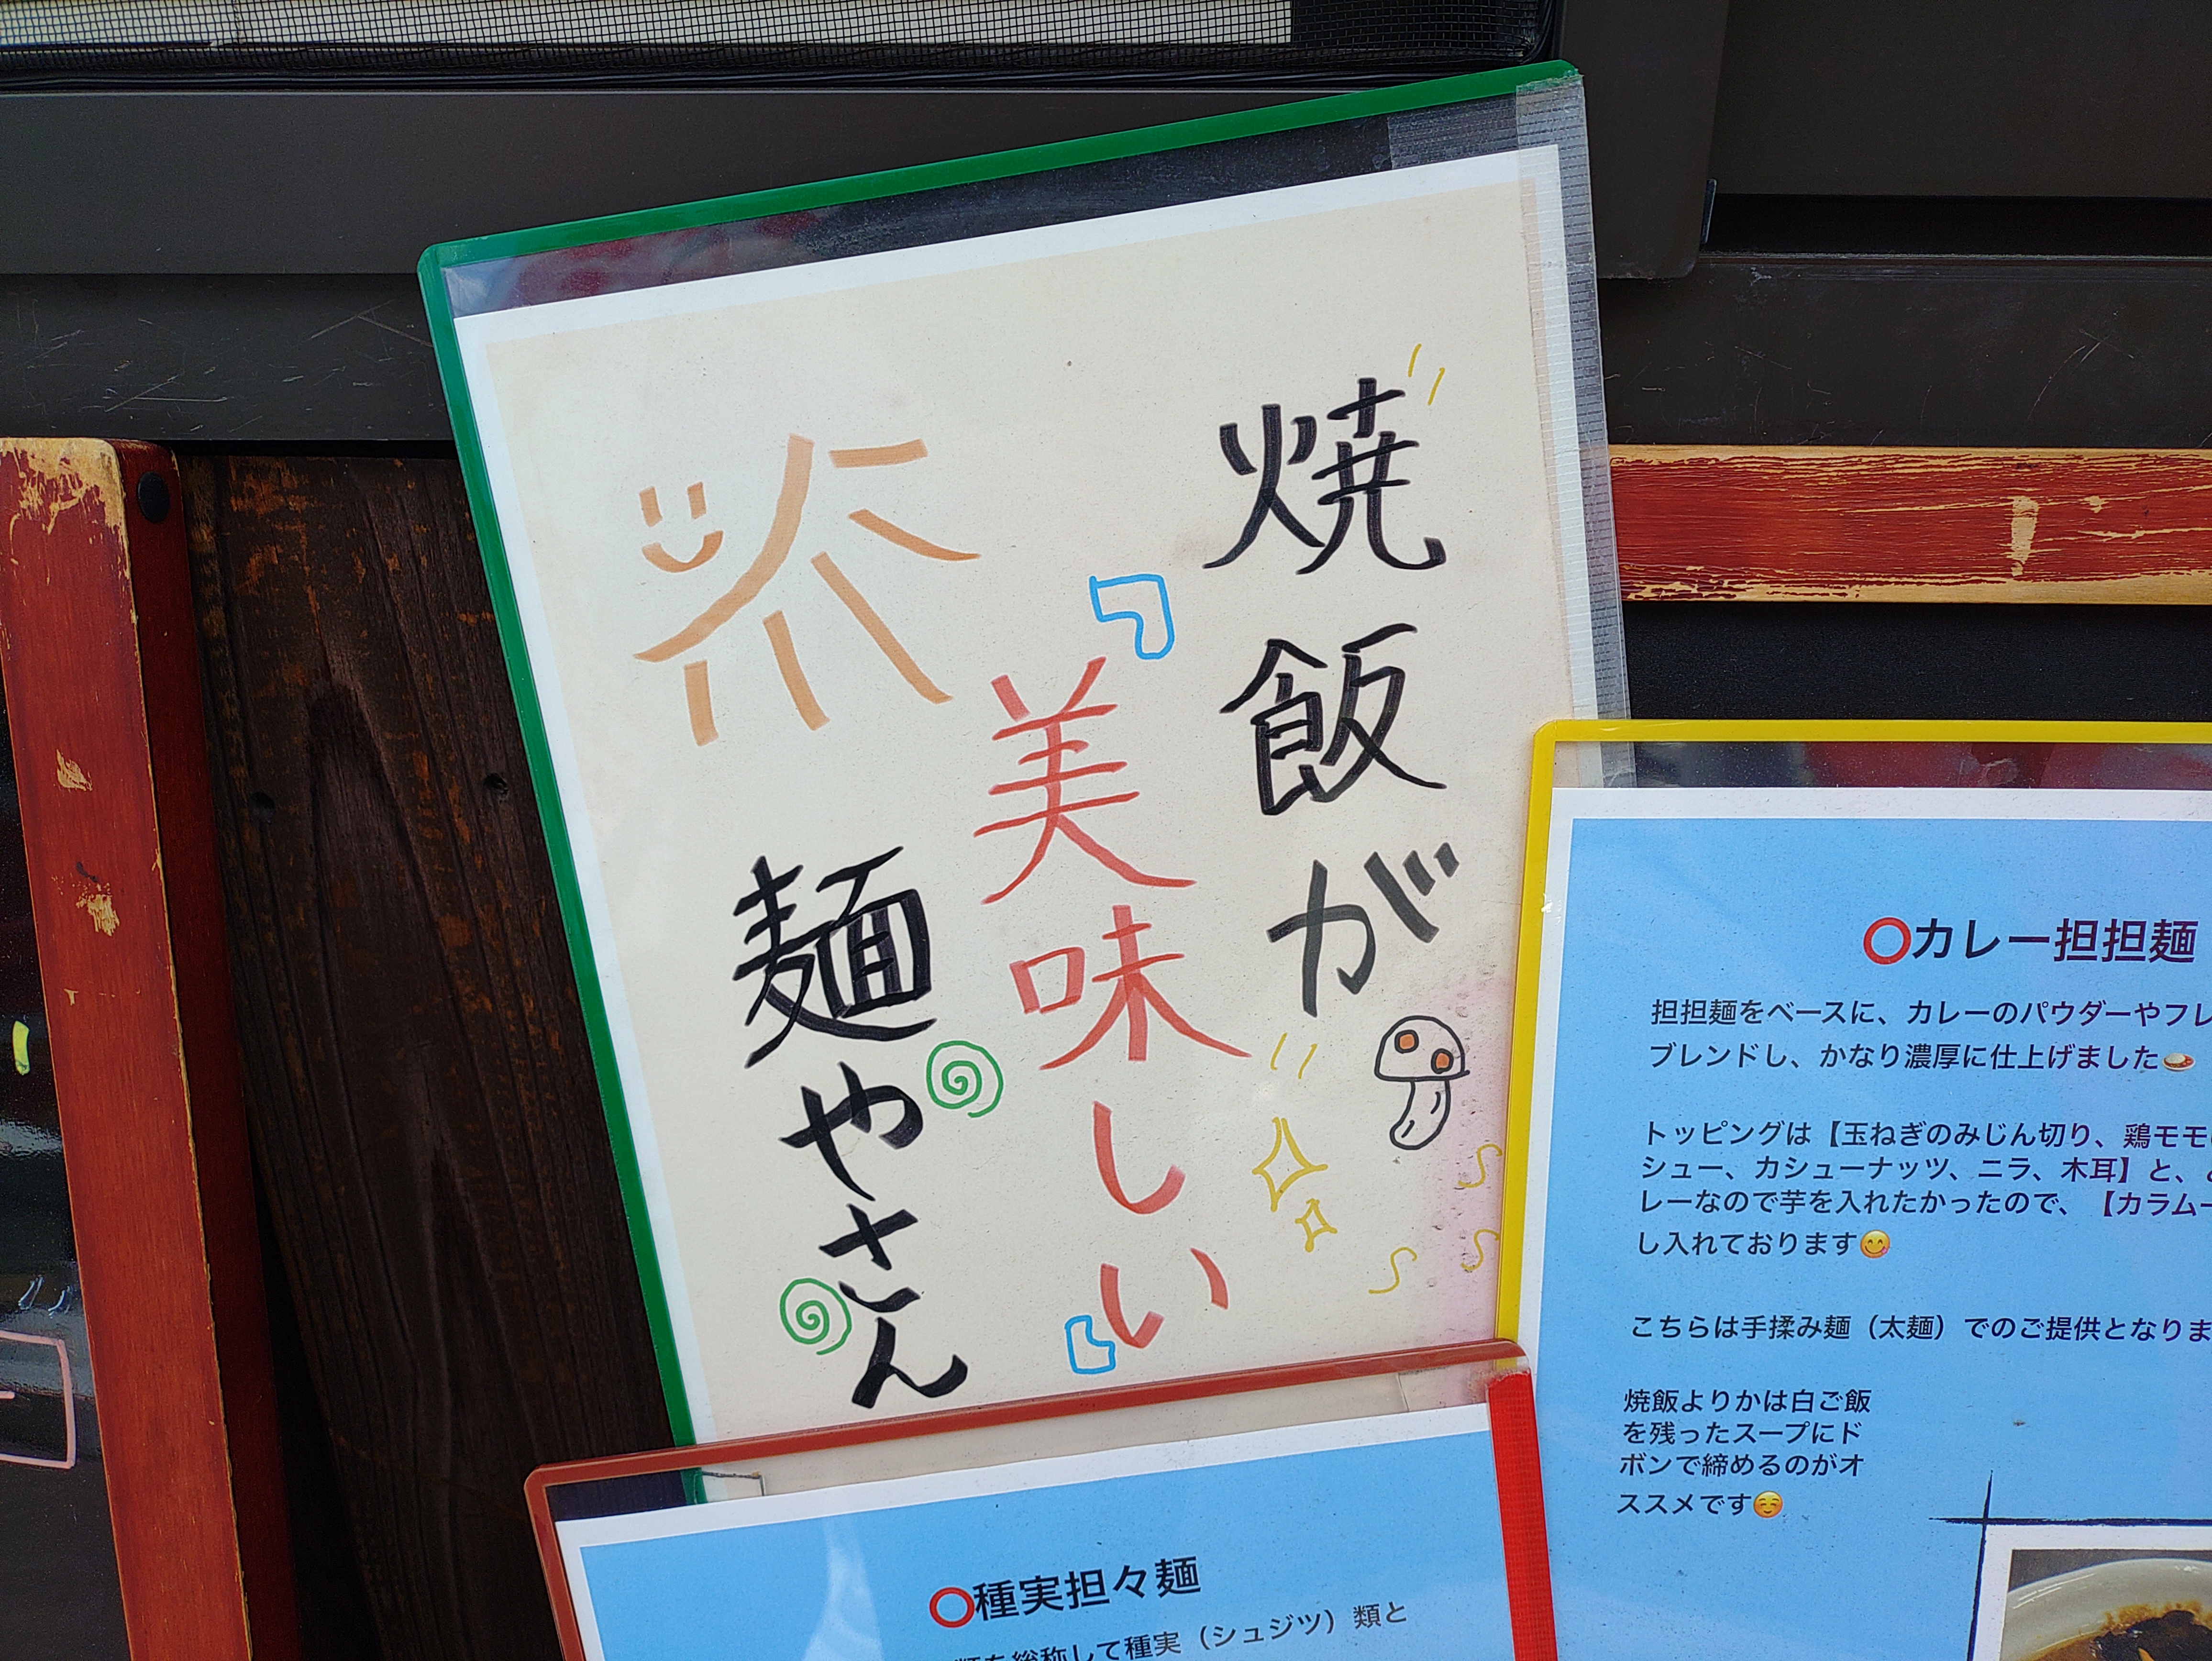 焼飯が
美味しい
麺やさん
⭕カレー担担麺
担担麺をベースに、カレーのパウダーやフレ
ブレンドし、かなり濃厚に仕上げました🍛
トッピングは【玉ねぎのみじん切り、鶏モモ
シュー、カシューナッツ、ニラ、木耳】と、
レーなので芋を入れたかったので、【カラムー
し入れております😋
こちらは手揉み麺（太麺）でのご提供となりま
焼飯よりかは白ご飯
を残ったスープにド
ボンで締めるのがオ
ススメです☺️
⭕種実担々麺
類を総称して種実（シュジツ）類と